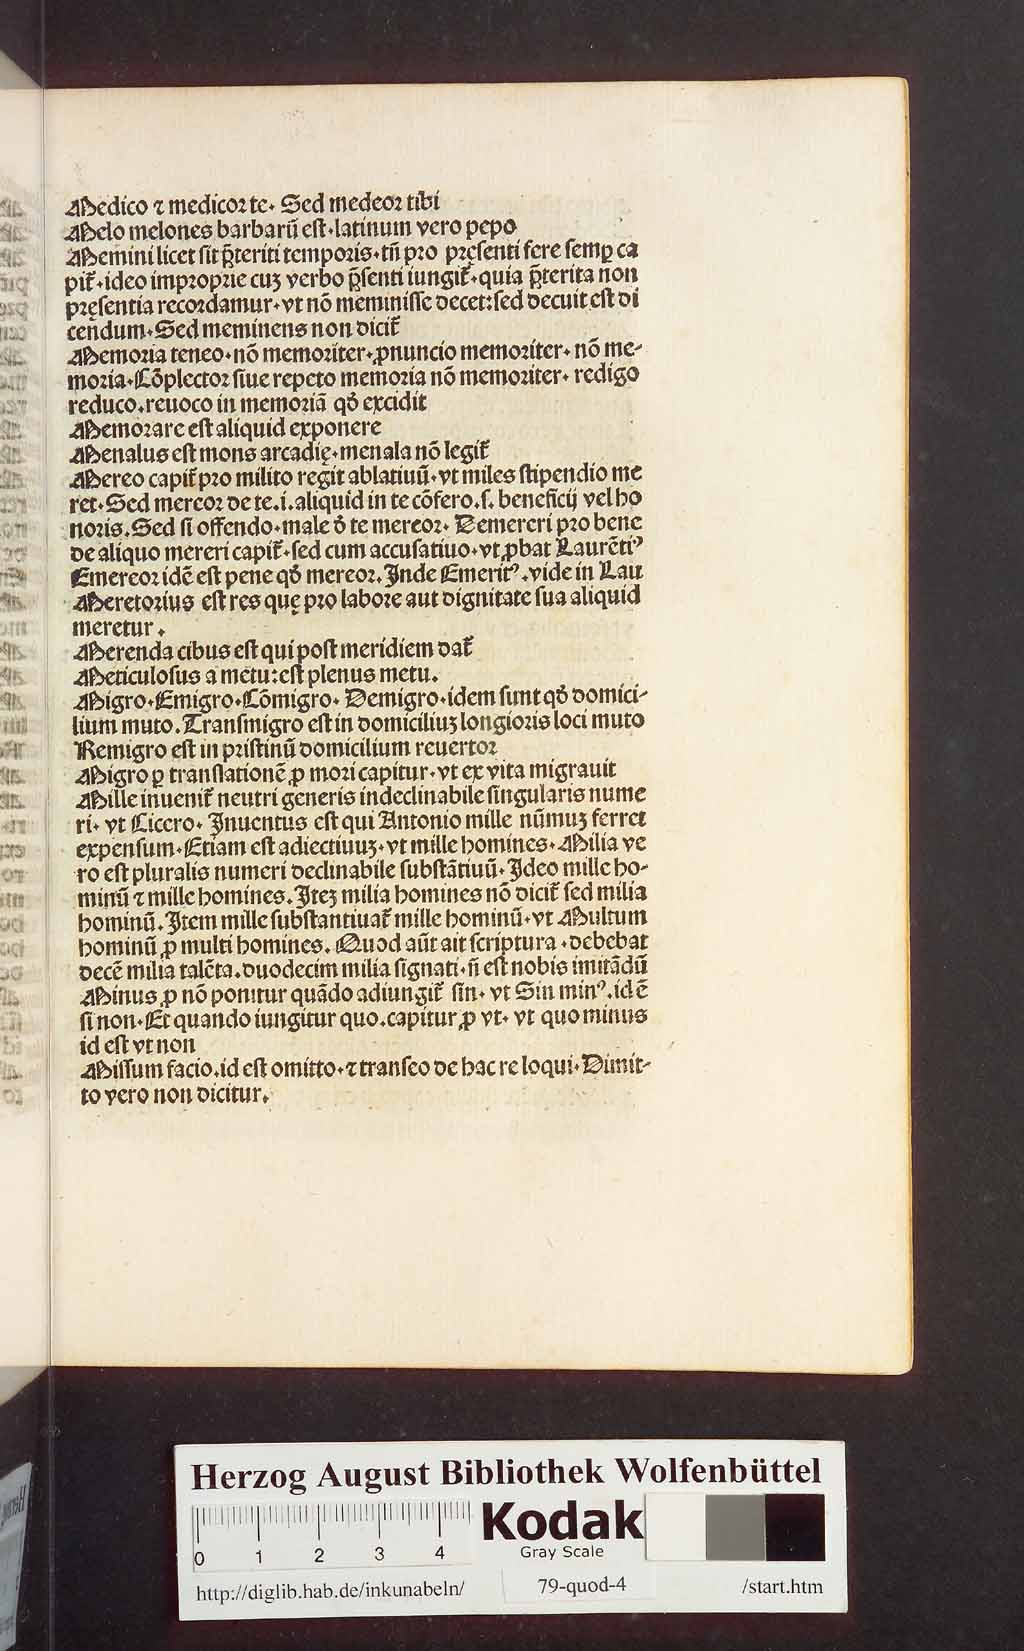 Medico ⁊ medicor te. Sed medeor tibi
Melo melones barbarū est. latinum vero pepo
Memini licet sit p̄teriti temporis. tn̄ pro pręsenti fere semꝑ ca
pit᷑. ideo improprie cuꝫ verbo p̄senti iungit᷑. quia p̄terita non
pręsentia recordamur. vt nō meminisse decet: sed decuit est di
cendum. Sed meminens non dicit᷑
Memoria teneo. nō memoriter. ꝓnuncio memoriter. nō me-
moria. Cōplector siue repeto memoria nō memoriter. redigo
reduco. reuoco in memoriā qd̓ excidit
Memorare est aliquid exponere
Menalus est mons arcadię. menala nō legit᷑
Mereo capit᷑ pro milito regit ablatiuū. vt miles stipendio me
ret. Sed mereor de te .i. aliquid in te cōfero .s. beneficij vel ho
noris. Sed si offendo. male d̓ te mereor. Demereri pro bene
de aliquo mereri capit᷑. sed cum accusatiuo. vt ꝓbat Laurētiꝰ
Emereor idē est pene qd̓ mereor. Inde Emeritꝰ. vide in Lau
Meretorius est res quę pro labore aut dignitate sua aliquid
meretur.
Merenda cibus est qui post meridiem dat᷑
Meticulosus a metu: est plenus metu.
Migro. Emigro. Cōmigro. Demigro. idem sunt qd̓ domici-
lium muto. Transmigro est in domiciliuꝫ longioris loci muto
Remigro est in pristinū domicilium reuertor
Migro ꝑ translationē ꝓ mori capitur. vt ex vita migrauit
Mille inuenit᷑ neutri generis indeclinabile singularis nume
ri. vt Cicero. Inuentus est qui Antonio mille nūmuꝫ ferret
expensum. Etiam est adiectiuuꝫ. vt mille homines. Milia ve
ro est pluralis numeri declinabile substātiuū. Ideo mille ho-
minū ⁊ mille homines. Iteꝫ milia homines nō dicit᷑ sed milia
hominū. Item mille substantiuat᷑ mille hominū. vt Multum
hominū ꝓ multi homines. Quod aūt ait scriptura. debebat
decē milia talēta. duodecim milia signati. n̄ est nobis imitādū
Minus ꝓ nō ponitur quādo adiungit᷑ sin. vt Sin minꝰ. id ē
si non. Et quando iungitur quo. capitur ꝓ vt. vt quo minus
id est vt non
Missum facio. id est omitto. ⁊ transeo de hac re loqui. Dimit-
to vero non dicitur.
Herzog August Bibliothek Wolfenbüttel
0 1 2 3 4
Kodak
Gray Scale
http://diglib.hab.de/inkunabeln/ 79-quod-4 /start.htm